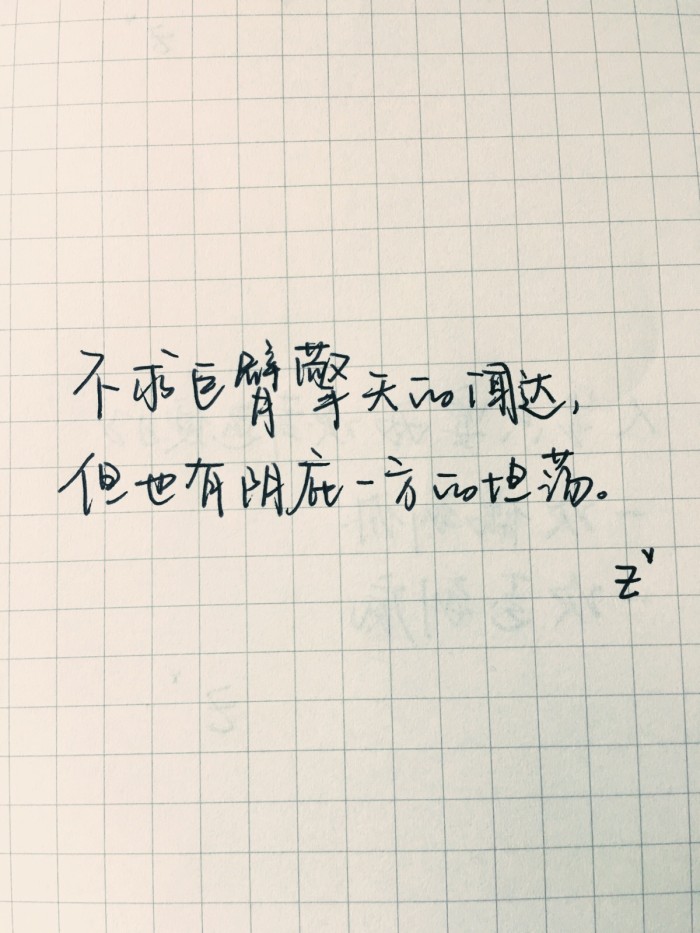 不求巨臂擎天的闻达，
但也有阴庇一方的坦荡。
Z